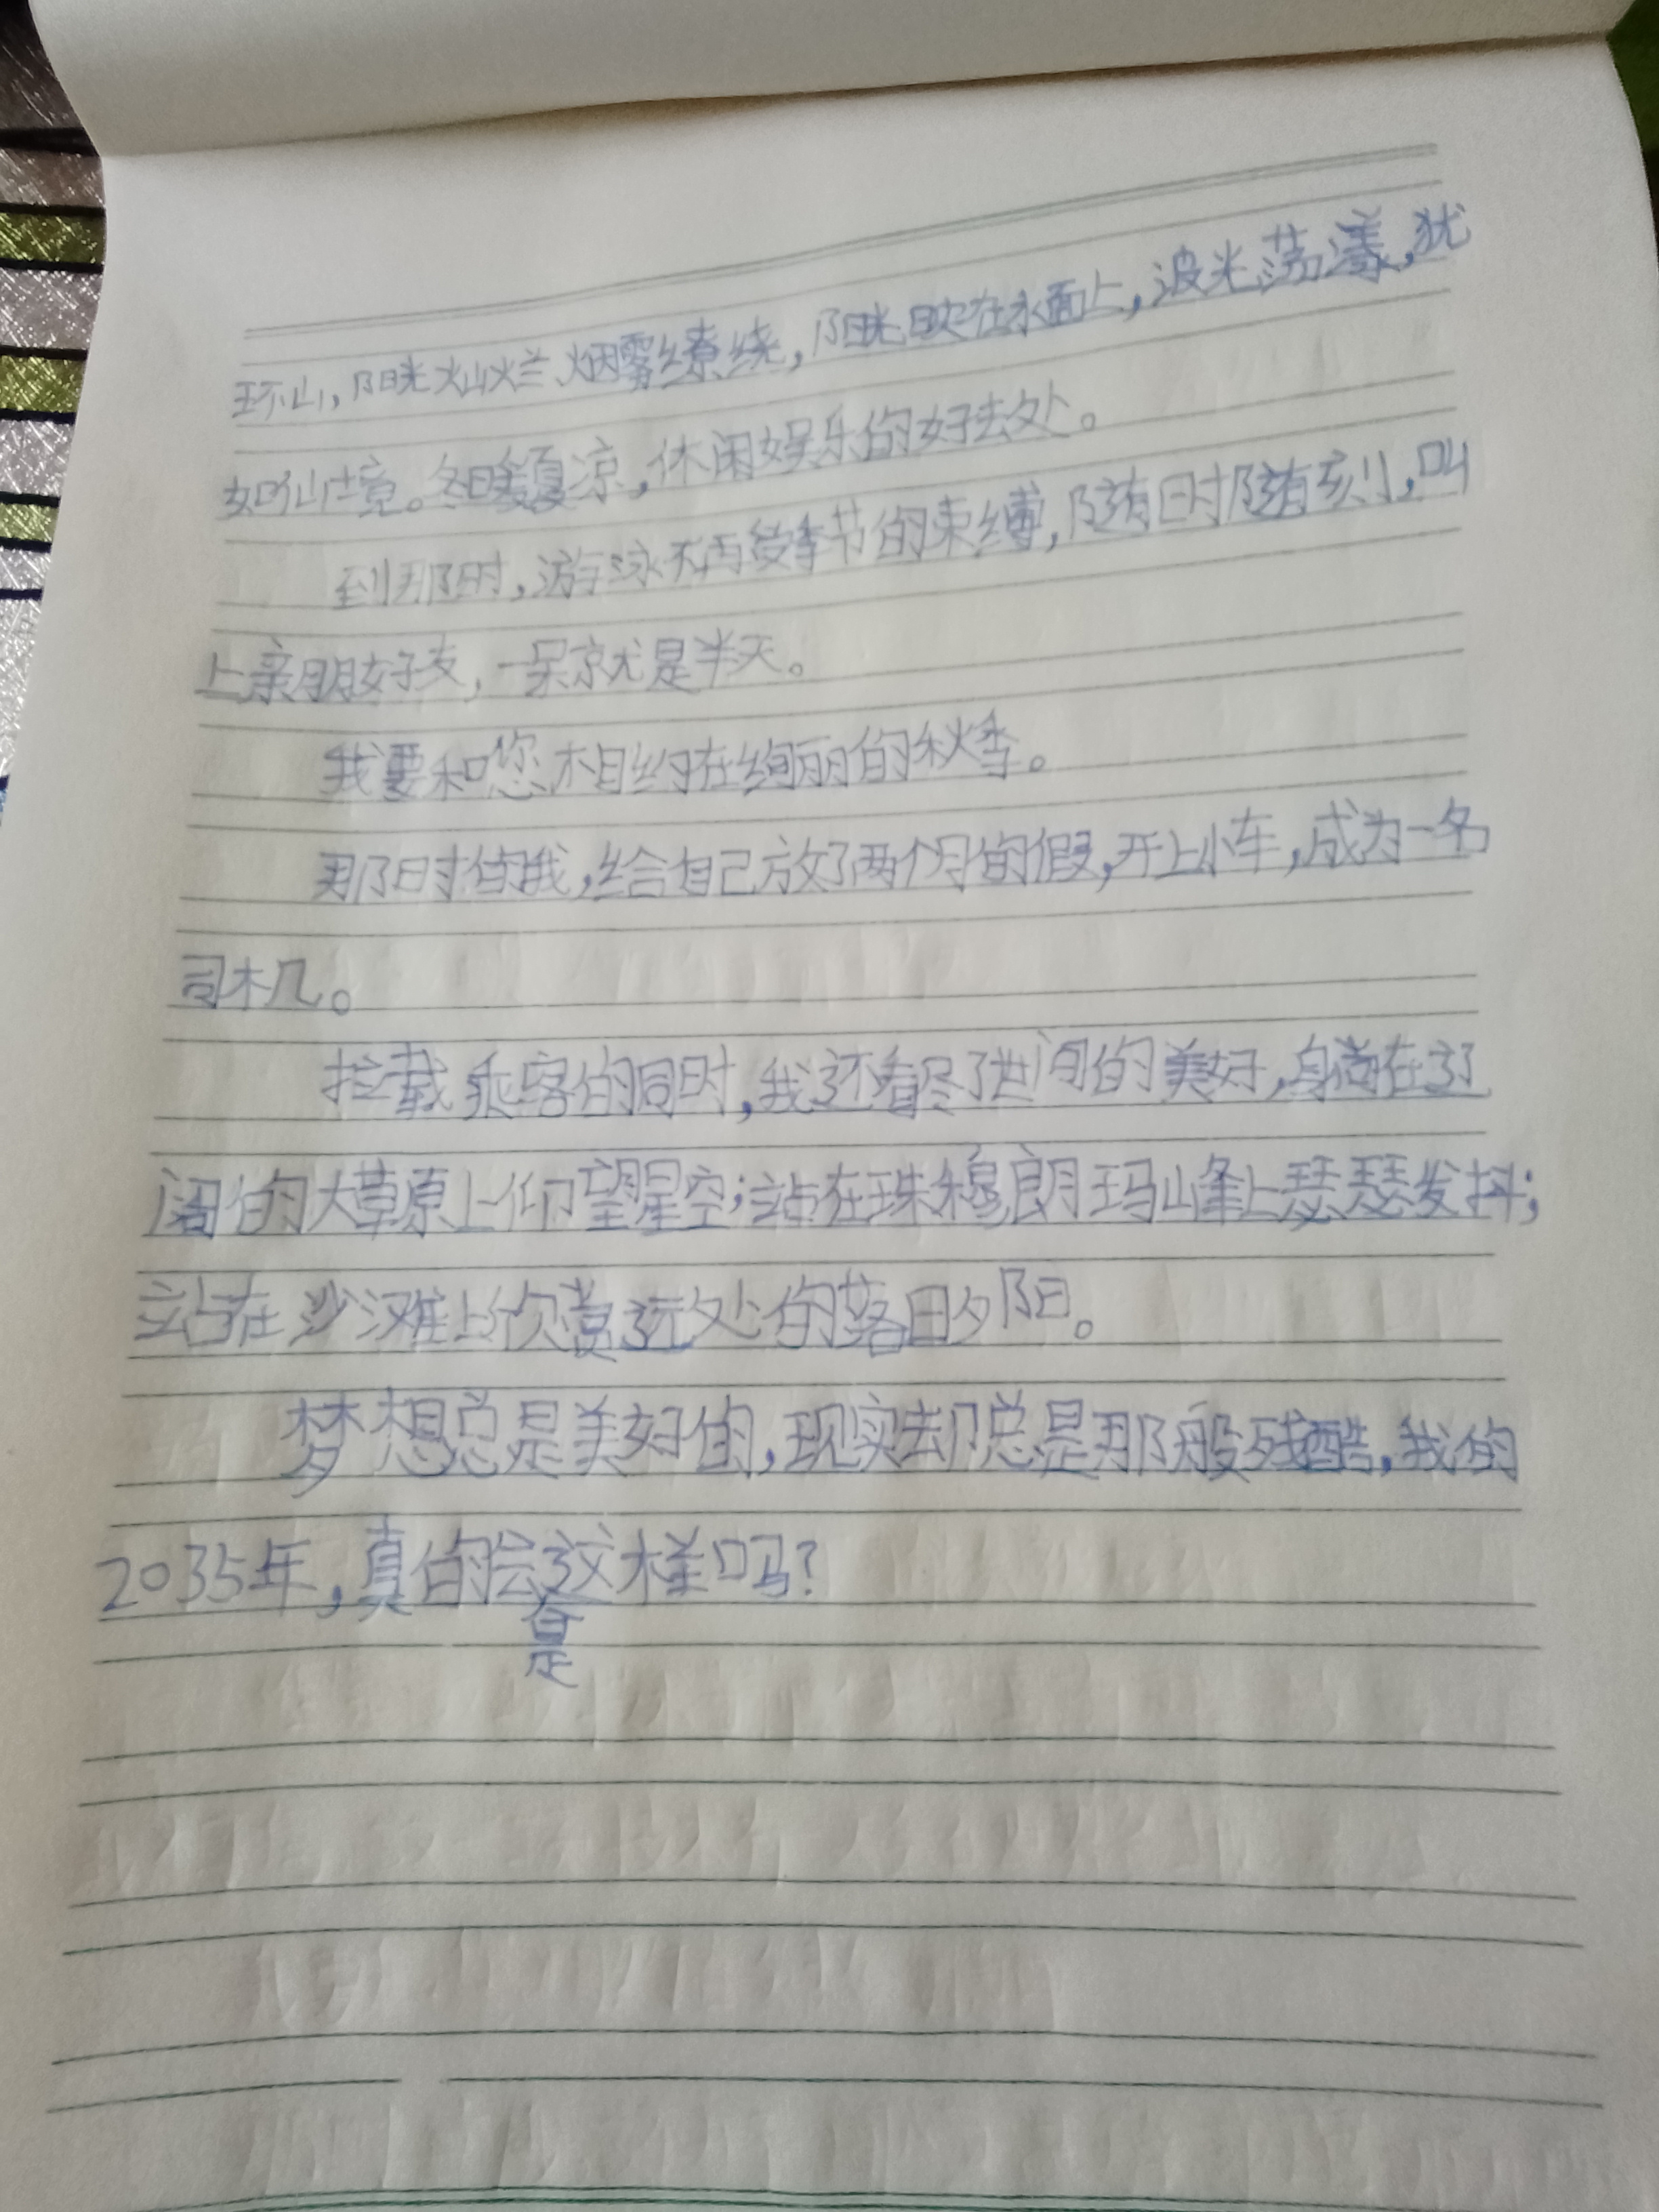 环山,阳光灿烂、烟雾缭绕,阳光映在水面上,波光荡漾,犹
如仙境。冬暖夏凉,休闲娱乐的好去处。
到那时,游泳不再受季节的束缚,随时随刻,叫
上亲朋好友,一呆就是半天。
我要和您相约在绚丽的秋季。
那时的我,给自己放了两个月的假,开上小车,成为一名
司机。
拉载乘客的同时,我还看尽了世间的美好,躺在辽
阔的大草原上仰望星空;站在珠穆朗玛峰上瑟瑟发抖;
站在沙滩上欣赏远处的落日夕阳。
梦想总是美好的,现实却总是那般残酷,我的
2035年,真的会这样吗?
是